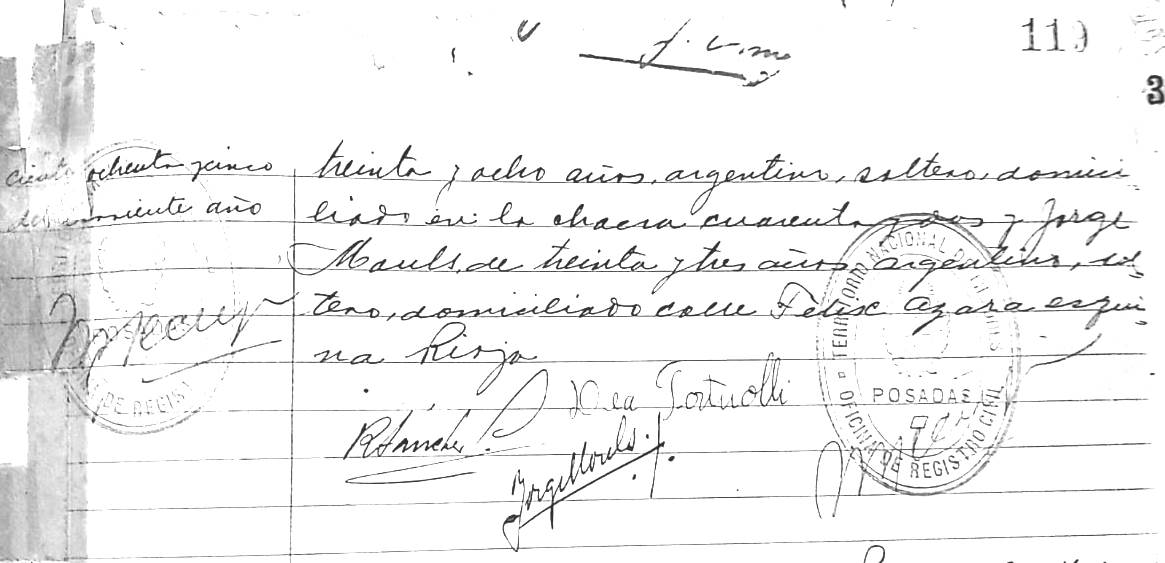 119
3
ciento ochenta y cinco
del corriente año
treinta y ocho años, argentino, soltero, domici
liado en la chacra cuarenta y dos y Jorge
Mouls, de treinta y tres años, argentino, sol-
tero, domiciliado calle Félix Azara esqui-
na Rioja
TERRITORIO NACIONAL DE MISIONES
POSADAS
OFICINA DE REGISTRO CIVIL
DE REGIS